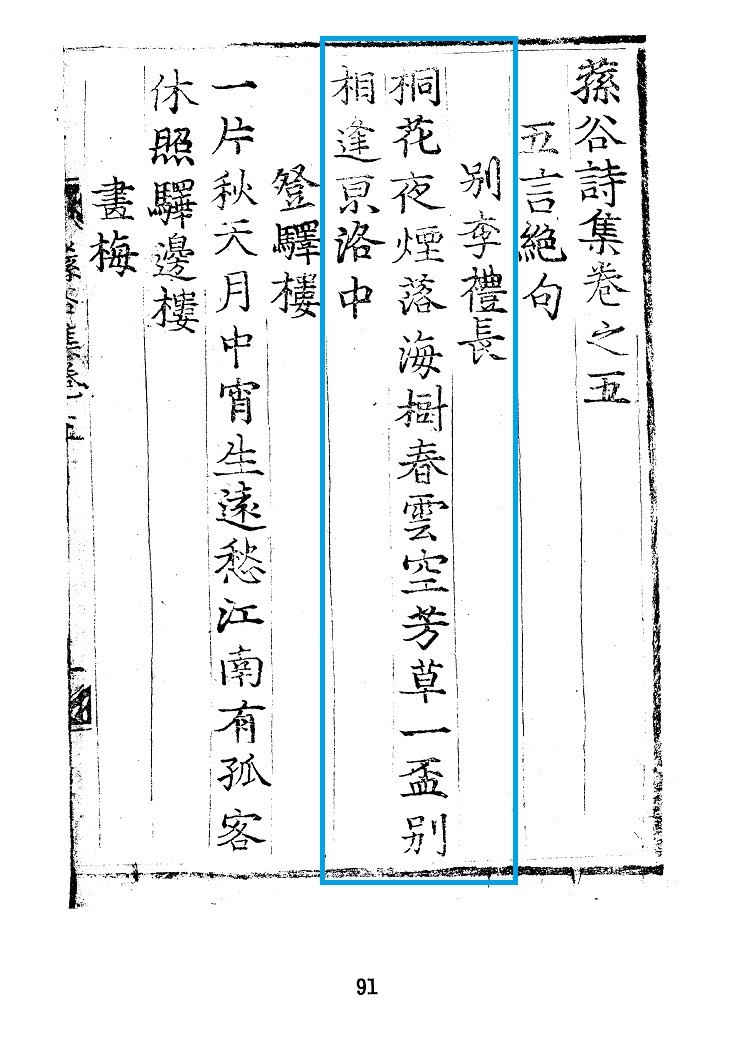 蓀谷詩集卷之五
五言絕句
別李禮長
桐花夜煙落海樹春雲空芳草一盃別
相逢京洛中
登驛樓
一片秋天月中宵生遠愁江南有孤客
休照驛邊樓
畫梅
蓀谷集卷五
91